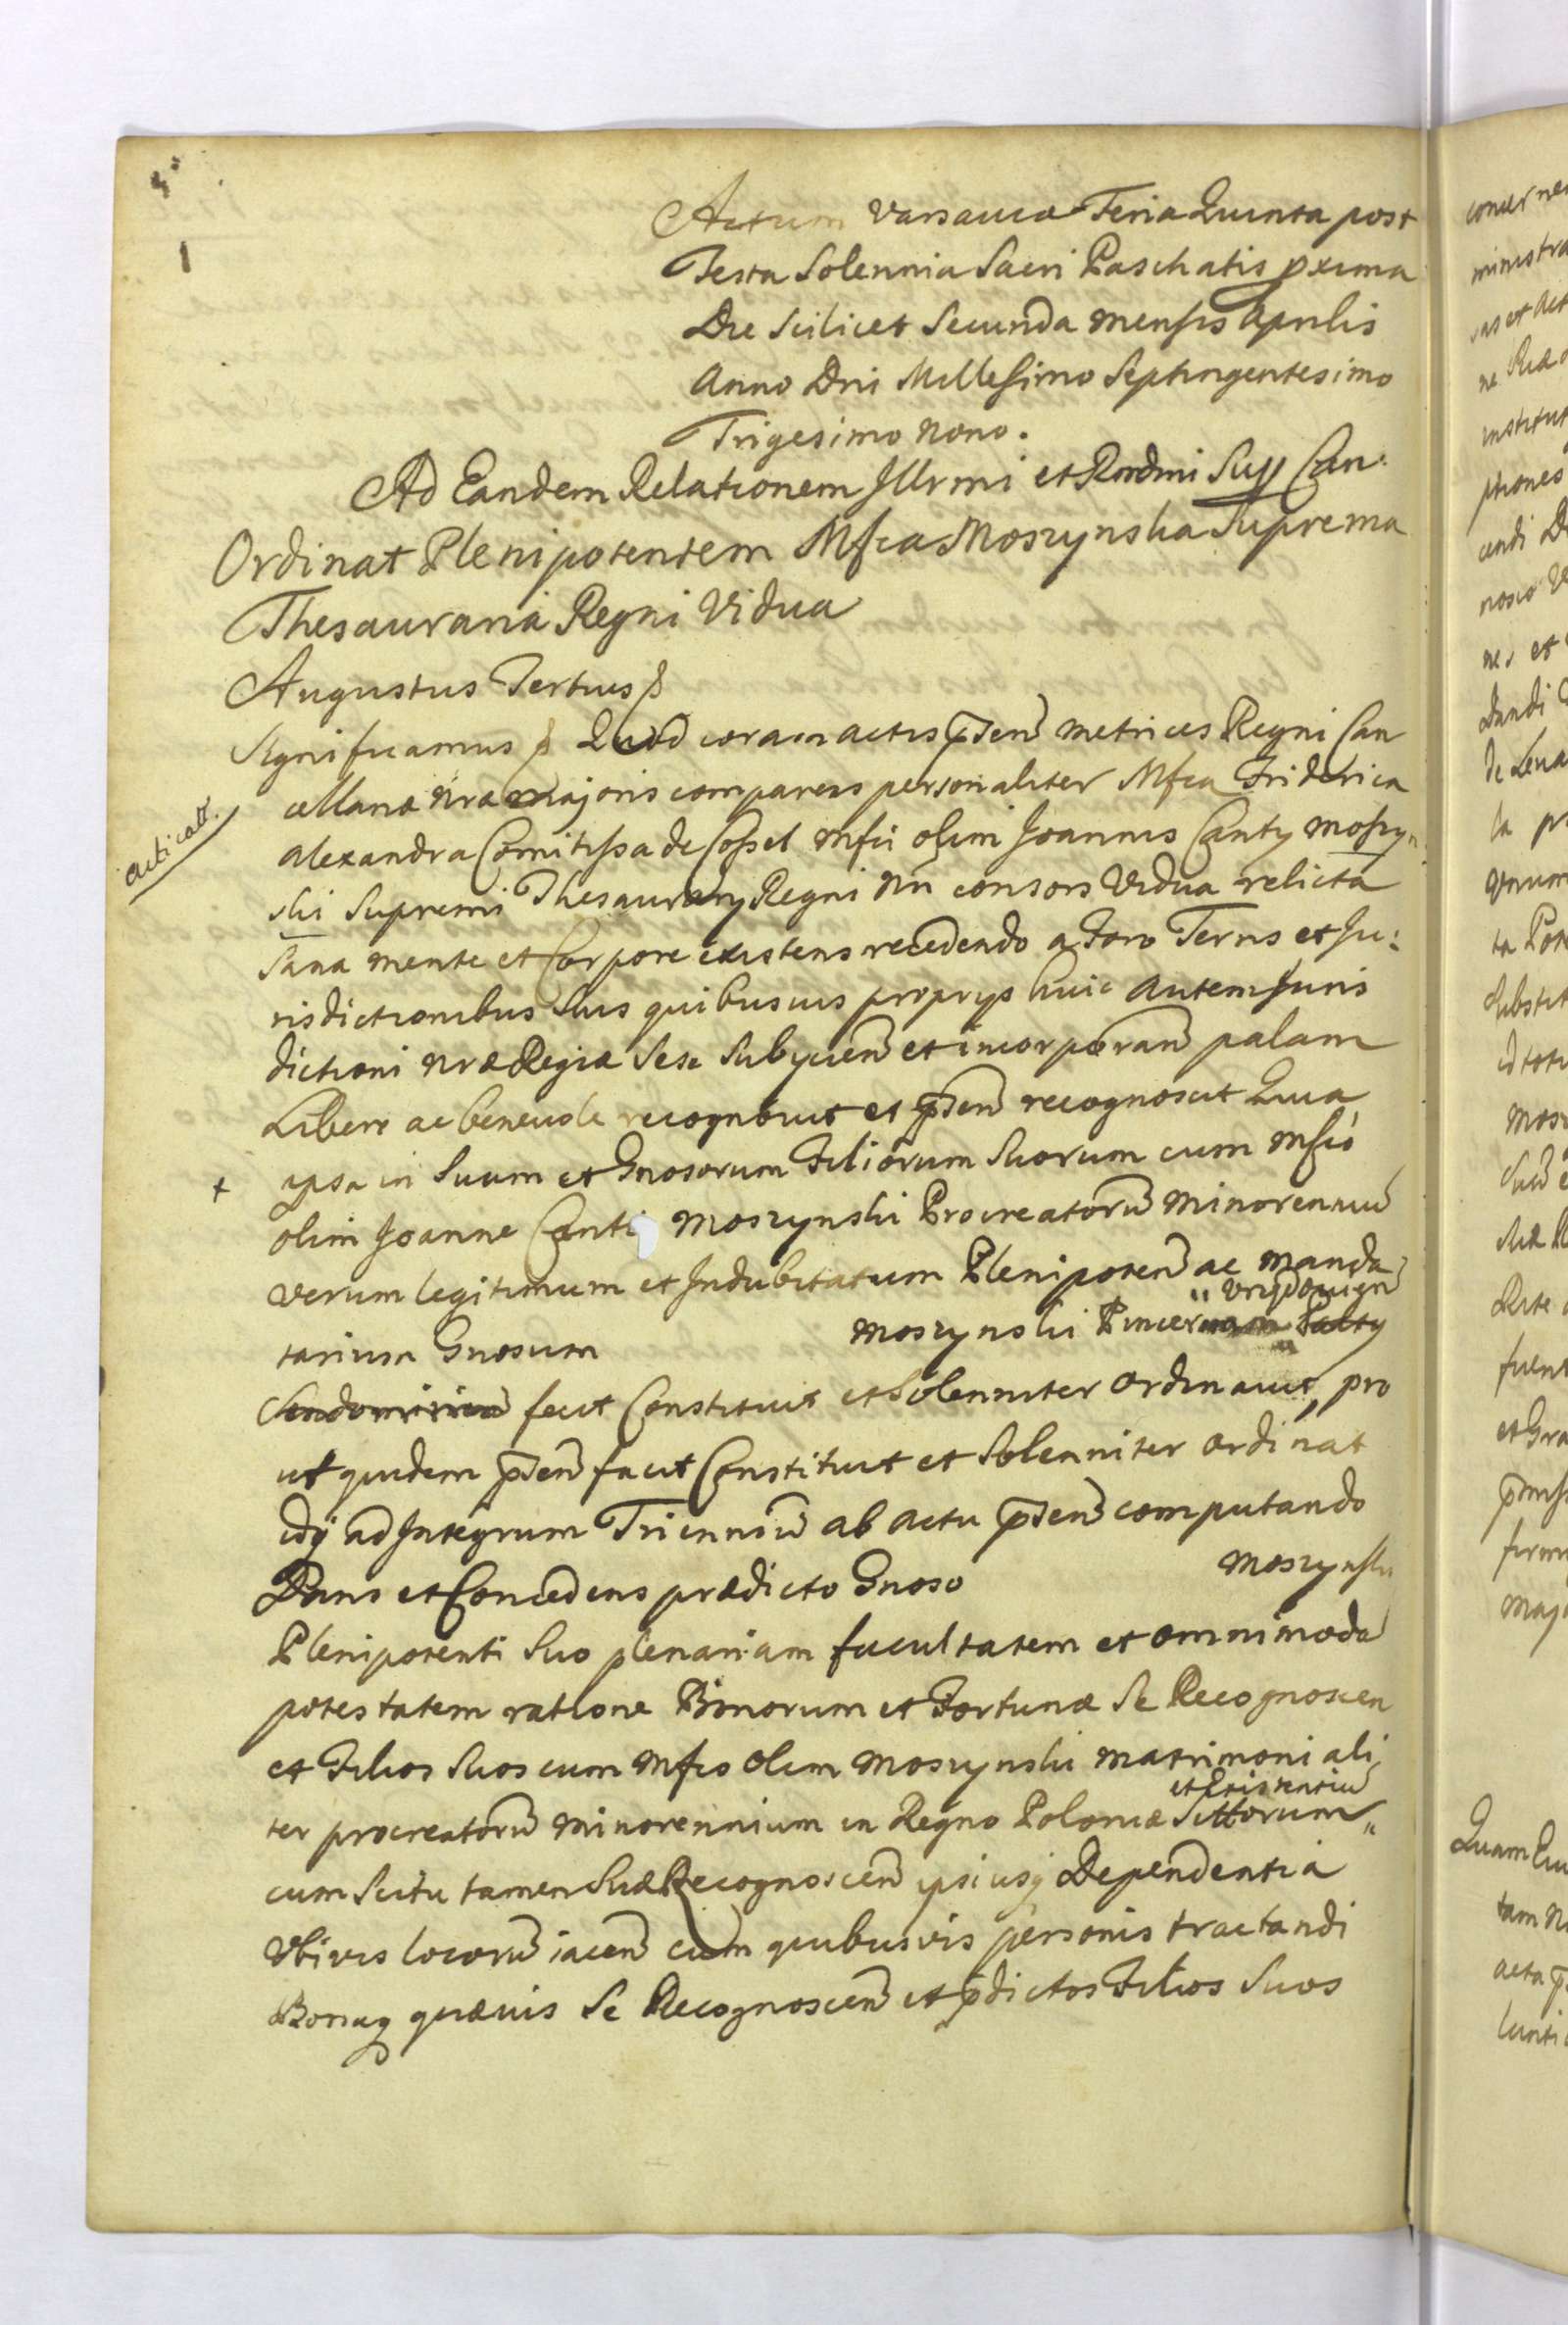 1
Actum Varsaviæ Feria Quinta post
Festa Solennia Sacri Paschatis pxima
Die Scilicet Secunda mensis Aprilis
Anno Dni Millesimo Septingentesimo
Trigesimo Nono.
Ad Eandem Relationem Illrmi et Rndmi Sup Can:
Ordinat Plenipotentem Mfca Moszynska Suprema
Thesauraria Regni Vidua
Augustus Tertius
Significamus Quod coram actis pñsen metrices Regni Can
cellariæ nræ majoris comparens personaliter Mfca Friderica
Alexandra Comitissa de Cossel Mfci olim Joannis Canty Moszyn
ski Supremi Thesaurarij Regni Nri consors Vidua relicta
Sana mente et Corpore existens recedendo a Foro Terris et Ju:
risdictionibus suis quibusvis proprys huic autem Juris
dictioni nræ Regiæ sese subycien et incorporan palam
Libere ac benevole recognovit et pñsen recognoscit Quia
ipsa in suum et Gnosorum Filiorum suorum cum Mfco
olim Joanne Canti Moszynski Procreatorū minorenniū
verum legitimum et Indubitatum Plenipoten ac Manda
tarium Gnosum Moszynski Pincernam Podoliæ
Sendomirien fecit Constituit et solenniter ordinavit, pro
ut quidem pñsen facit Constituit et solenniter ordinat
idq ad Integrum Trienniū ab actu pñsen computando
Dans et Concedens prædicto Gnoso Moszynski
Plenipotenti suo plenariam facultatem et omnimodā
potestatem ratione Bonorum et Fortunæ se Recognoscen
et Filios suos cum Mfco olim Moszynski matrimoniali
ter procreatorū minorennium in Regno Poloniæ sittorum
et Existentiū
cum scitu tamen suæ Recognoscen ipsiusq Dependentia
Ubivis locorū iacen cum quibusvis personis tractandi
Bonaq quævis se Recognoscen et pdictos Filios suos